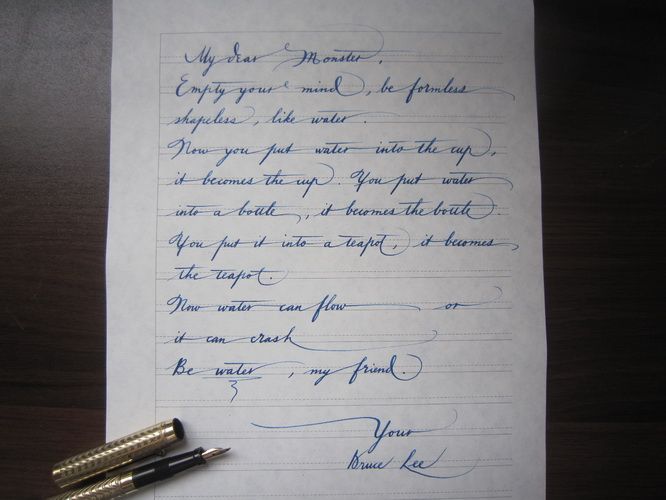 My dear Monster,
Empty your mind, be formless
shapeless, like water.
Now you put water into the cup,
it becomes the cup. You put water
into a bottle, it becomes the bottle.
You put it into a teapot, it becomes
the teapot.
Now water can flow or
it can crash
Be water, my friend.
Your
Bruce Lee